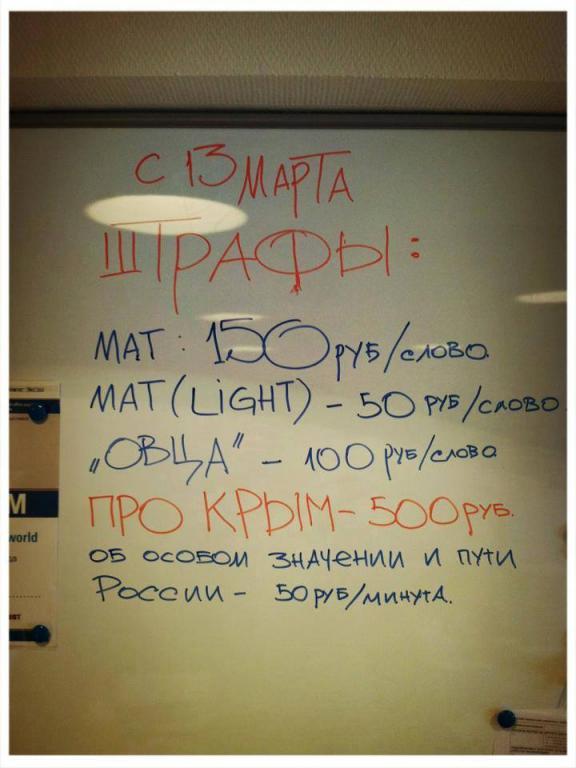 С 13 МАРТА
ШТРАФЫ:
МАТ: 150 РУБ/СЛОВО.
МАТ (LIGHT) – 50 РУБ/СЛОВО
„ОВЦА" – 100 РУБ/СЛОВО
ПРО КРЫМ – 500 РУБ.
ОБ ОСОБОМ ЗНАЧЕНИИ И ПУТИ
РОССИИ – 50 РУБ/МИНУТА.
M
world